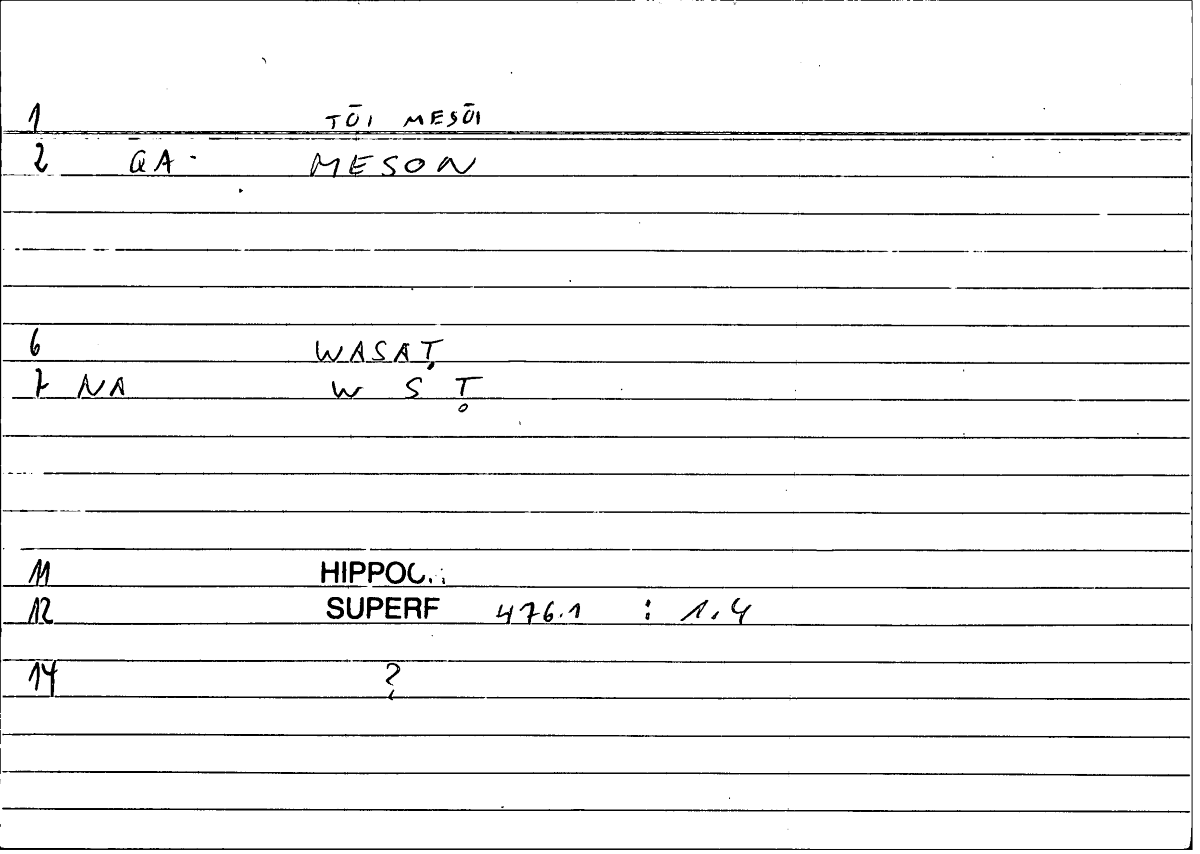 1 TŌI MESŌI
2 QA MESON
6 WASAṬ
7 NA W S Ṭ
11 HIPPOC.
12 SUPERF 476.1 : 1.4
14 ?